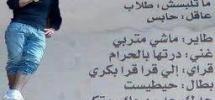 ما تلبسش، طلاب
عاقل: حابس
طاير: ماشي متربي
غني: درتها بالحرام
قراي: إلي قرا قرا بكري
بطال: حيطيست